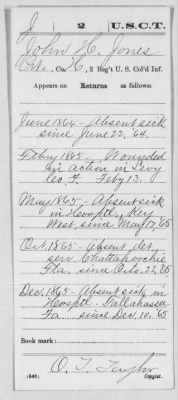 J | 2 | U.S.C.T.
John H. Jones
Co. H, 2 Reg't U. S. Col'd Inf.
Appears on Returns as follows:
June 1864 - Absent sick
since June 22, 64.
Feby 1865. Wounded
in action in Levy
Co. F. Feby 13.
May 1865 - Absent sick
in Hospt'l, Key
West since May 17, 65
Oct. 1865 - Absent det.
serv. Chattahoochie
Fla. since Oct. 22, 65
Dec. 1865 - Absent sick in
Hospt'l Tallahassee
Fa. since Dec. 10, 65
Book mark:
O. T. Taylor
(546) Copyist.